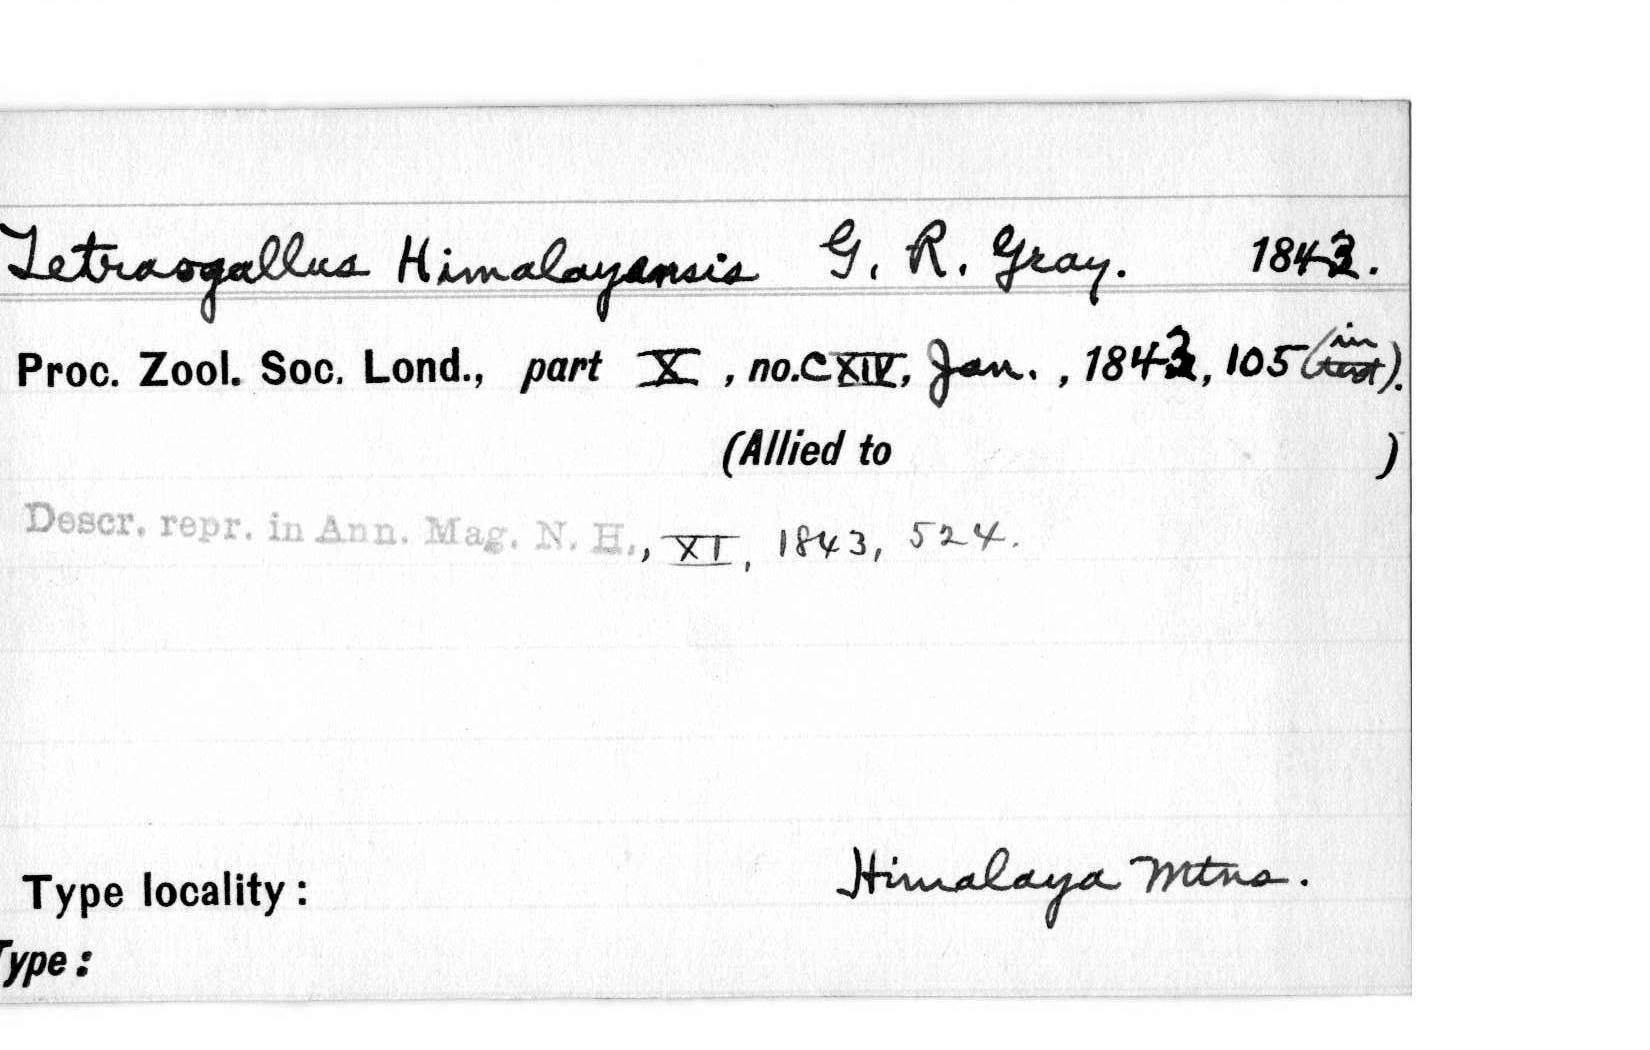 Tetraogallus Himalayensis G. R. Gray. 1843.
Proc. Zool. Soc. Lond., part X, no. CXIV, Jan., 1843, 105 (in text).
(Allied to )
Descr. repr. in Ann. Mag. N. H., XI, 1843, 524.
Type locality: Himalaya Mtns.
Type: